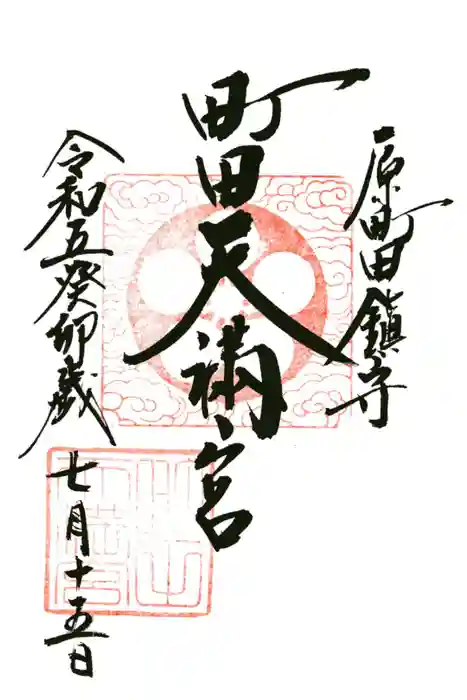 原町田鎮守
町田天満宮
令和五癸卯歳
七月十五日